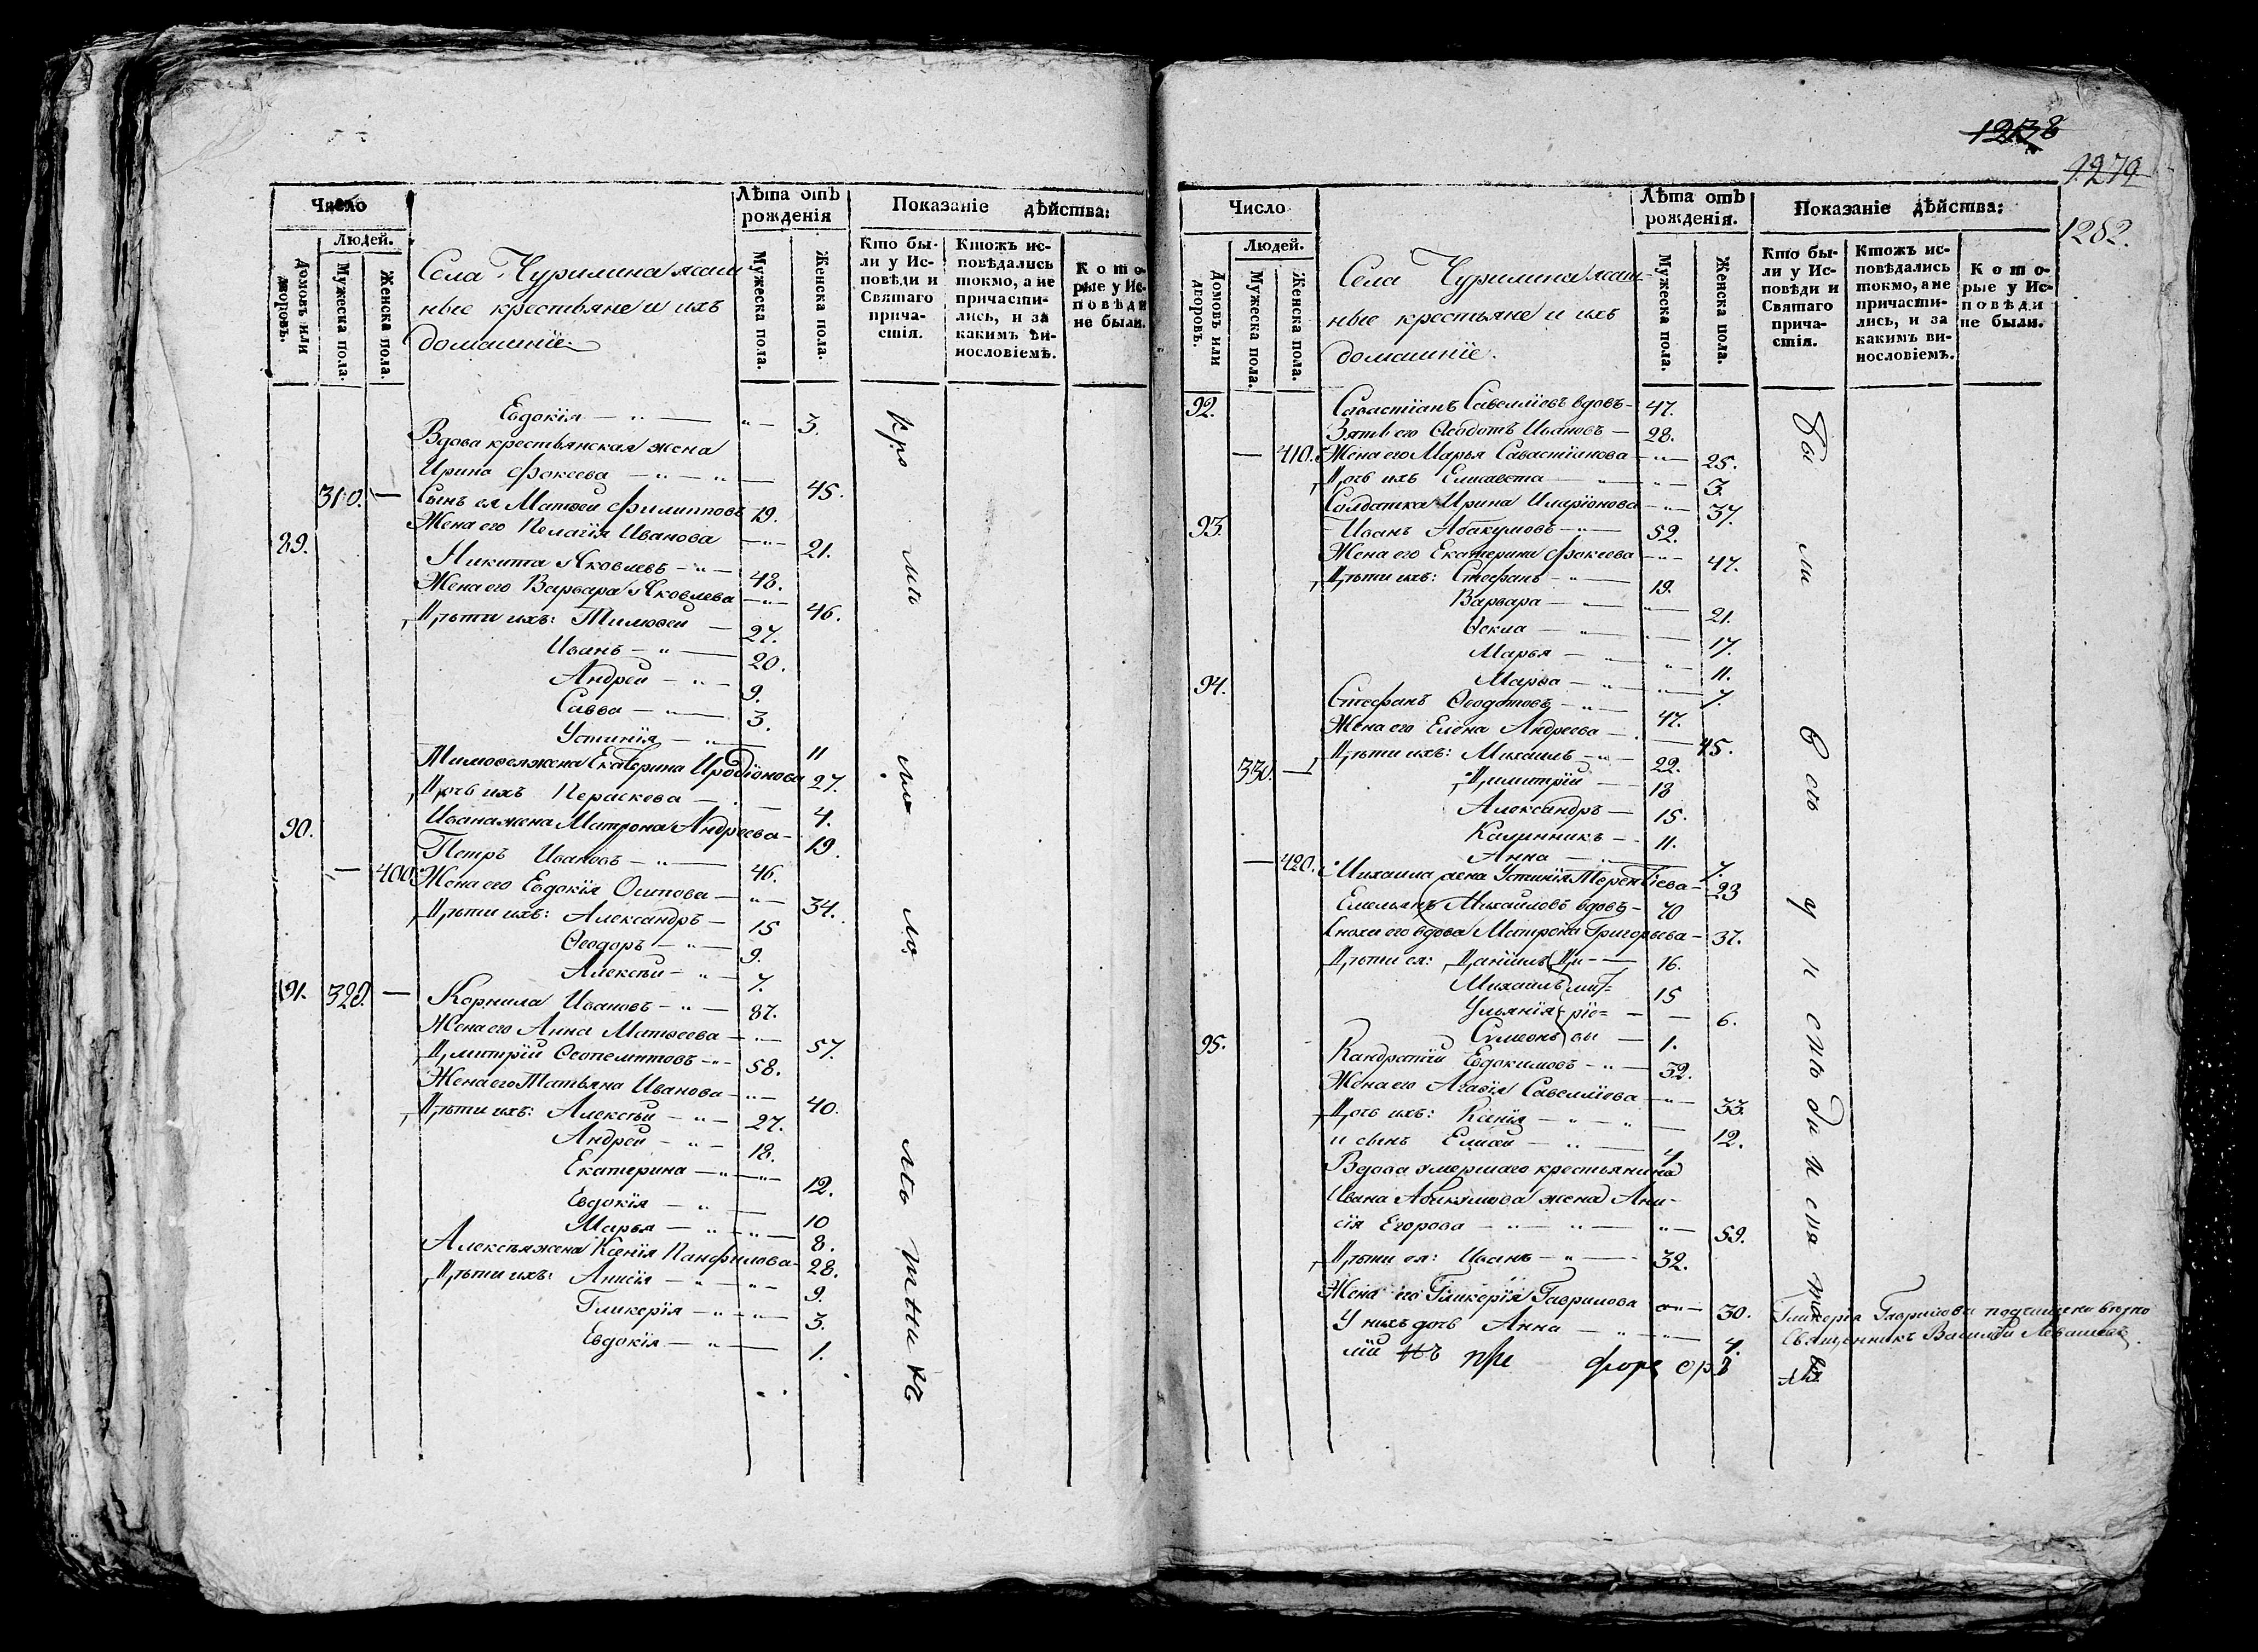 Число
Лѣта отъ рожденія
Показаніе дѣйства:
Людей.
Домовъ или дворовъ.
Мужеска пола.
Женска пола.
Села Чурилина ясаш
ные крестьяне и ихъ
домашніе
Мужеска пола.
Женска пола.
Кто бы-
ли у Ис-
повѣди и
Святаго
прича-
стія.
Ктожъ ис-
повѣдались
токмо, а не
причасти-
лись, и за
какимъ ви-
нословіемъ.
Кото-
рые у Ис-
повѣди
не были.
Евдокія — „ — 3.
Вдова крестьянская жена
Ирина Фокеева — „ — „ — 45.
310. — Сынъ ея Матвей Филипповъ 19.
Жена его Пелагія Иванова — „ — 21.
89. Никита Яковлевъ — „ — 48.
Жена его Варвара Яковлева — „ — 46.
Дѣти ихъ: Тимофей — 27.
Иванъ — „ — 20.
Андрей — „ — 9.
Савва — „ — 3.
Устинія — „ — 11
Тимофея жена Екатерина Иродіонова 27.
Дочь ихъ Параскева — 4.
Ивана жена Матрона Андреева — 19.
90. Петръ Ивановъ — „ — 46.
— 400. Жена его Евдокія Осипова — „ — 34.
Дѣти ихъ: Александръ — 15
Ѳеодоръ — „ — 9.
Алексѣй — „ — 7.
91. 320. — Корнила Ивановъ — „ — 87.
Жена его Анна Матвеева — „ — 57.
Дмитрій Ѳеопемптовъ — „ — 58.
Жена его Татьяна Иванова — „ — 40.
Дѣти ихъ: Алексѣй — „ — 27.
Андрей — „ — 18.
Екатерина — „ — „ — 12.
Евдокія — „ — 10
Марья — „ — „ — 8.
Алексѣя жена Ксенія Панфилова — 28.
Дѣти ихъ: Анисія — „ — „ — 9.
Гликерія — „ — „ — 3.
Евдокія — „ — 1.
1278
1279
1282.
Число
Лѣта отъ рожденія.
Показаніе дѣйства:
Людей.
Домовъ или дворовъ.
Мужеска пола.
Женска пола.
Села Чурилина ясаш-
ные крестьяне и ихъ
домашніе.
Мужеска пола.
Женска пола.
Кто бы-
ли у Ис-
повѣди и
Святаго
прича-
стія.
Ктожъ ис-
повѣдались
токмо, а не
причасти-
лись, и за
какимъ ви-
нословіемъ.
Кото-
рые у Ис-
повѣди
не были.
92. Савастіанъ Савелліевъ вдовъ — 47.
Зять его Ѳеодотъ Ивановъ — 28.
— 410. Жена его Марья Савастіанова — „ — 25.
Дочь ихъ Елисавета — „ — 3.
Солдатка Ирина Иларіонова — „ — 37.
93. Иванъ Абакумовъ — „ — 52.
Жена его Екатерина Фокеева — „ — 47.
Дѣти ихъ: Стефанъ — „ — 19.
Варвара — „ — 21.
Ѳекла — „ — 17.
Марья — „ — „ — 11.
Марѳа — „ — „ — 7.
94. Стефанъ Ѳеодотовъ — „ — 47.
Жена его Елена Андреева — 45.
Дѣти ихъ: Михаилъ — „ — 22.
330. — Димитрій — 18
Александръ — 15.
Калинникъ — 11.
Анна — 7.
— 420. Михаила жена Устинія Терентіева — 23
Емельянъ Михайловъ вдовъ — 70
Сноха его вдова Матрона Григорьева — 37.
Дѣти ея: Даніилъ Ди — 16.
Михаилъ мит= 15
Ульянія ріе= — 6.
Симеонъ вы — 1.
95. Кандратій Евдокимовъ — „ — 32.
Жена его Агафія Савелліева — „ — 33.
Дочь ихъ: Ксенія — „ — „ — 12.
и сынъ Елисей — „ — 4
Вдова умершаго крестьянина
Ивана Абакумова жена Ани-
сія Егорова — „ — „ — 59.
Дѣти ея: Иванъ — „ — 32.
Жена его Гликерія Гаврилова — „ — 30. Гликерія Гаврилова
У нихъ дочь Анна — „ — 4. Священникъ Василій Левашевъ